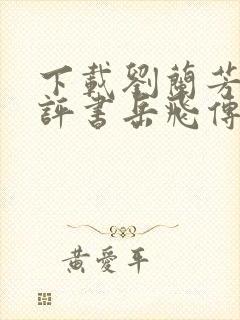 下載劉蘭芳
評書岳飛傳
黃愛平